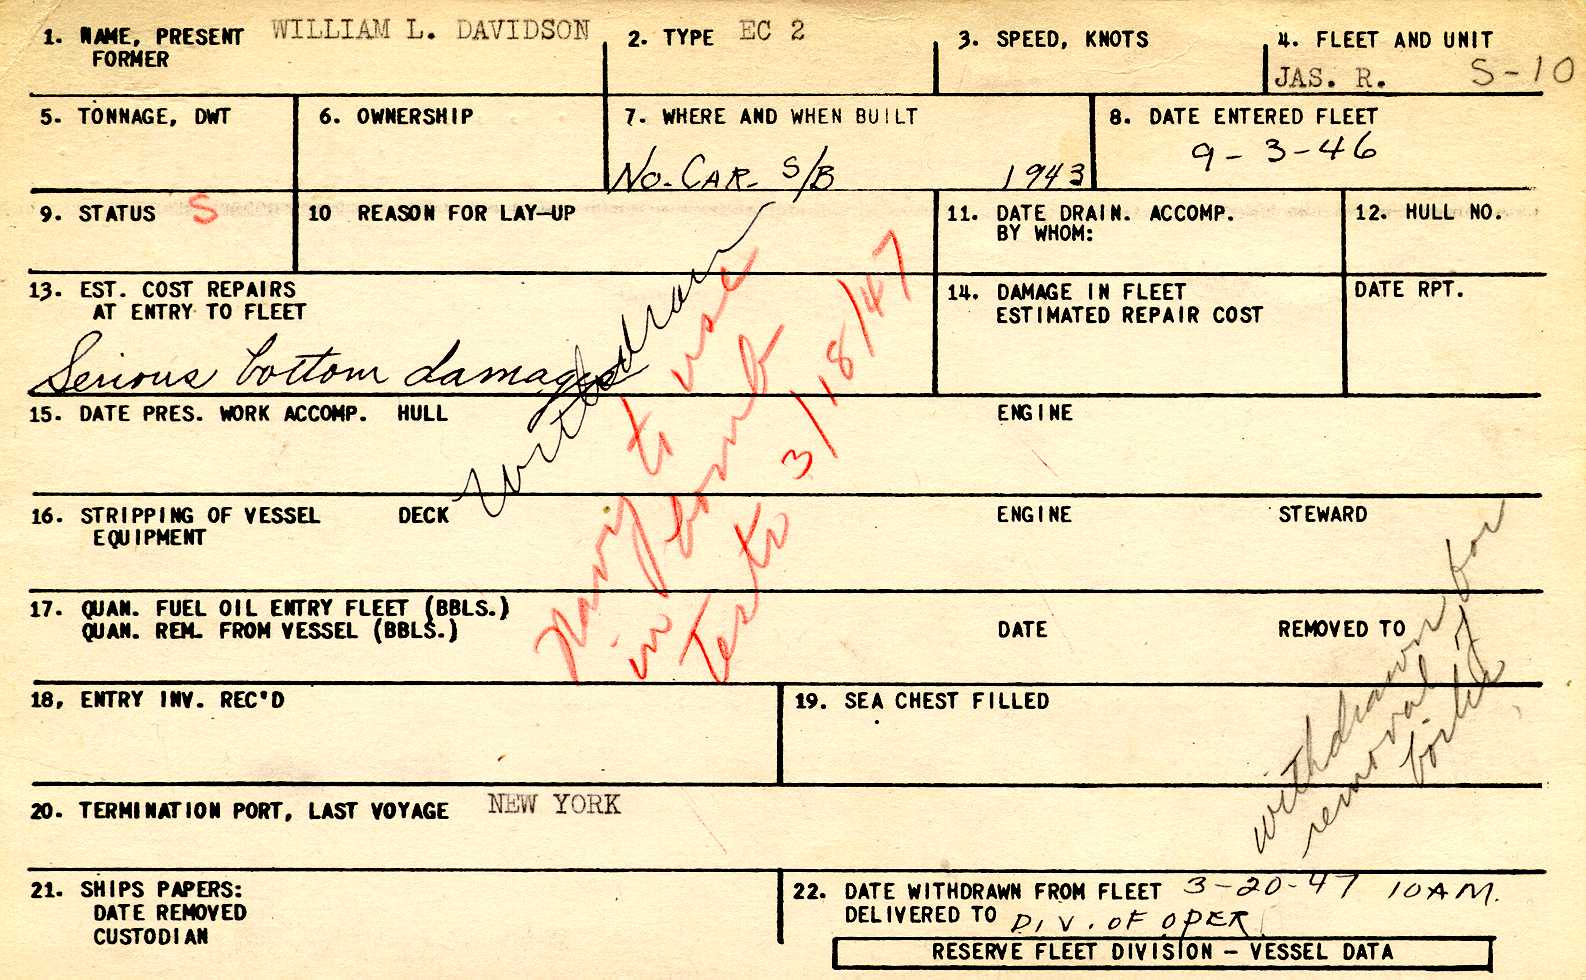 1. NAME, PRESENT WILLIAM L. DAVIDSON
FORMER
2. TYPE EC 2
3. SPEED, KNOTS
4. FLEET AND UNIT
JAS. R. S-10
5. TONNAGE, DWT
6. OWNERSHIP
7. WHERE AND WHEN BUILT
No. CAR. S/B 1943
8. DATE ENTERED FLEET
9-3-46
9. STATUS S
10 REASON FOR LAY-UP
11. DATE DRAIN. ACCOMP.
BY WHOM:
12. HULL NO.
13. EST. COST REPAIRS
AT ENTRY TO FLEET
Serious bottom damage
Withdrawn
Navy to use
in bomb
Tests 3/18/47
14. DAMAGE IN FLEET
ESTIMATED REPAIR COST
DATE RPT.
15. DATE PRES. WORK ACCOMP. HULL
ENGINE
16. STRIPPING OF VESSEL DECK
EQUIPMENT
ENGINE
STEWARD
17. QUAN. FUEL OIL ENTRY FLEET (BBLS.)
QUAN. REM. FROM VESSEL (BBLS.)
DATE
REMOVED TO
withdrawn for
removal of
18, ENTRY INV. REC'D
19. SEA CHEST FILLED
20. TERMINATION PORT, LAST VOYAGE NEW YORK
21. SHIPS PAPERS:
DATE REMOVED
CUSTODIAN
22. DATE WITHDRAWN FROM FLEET 3-20-47 10 AM.
DELIVERED TO DIV. OF OPER
RESERVE FLEET DIVISION - VESSEL DATA